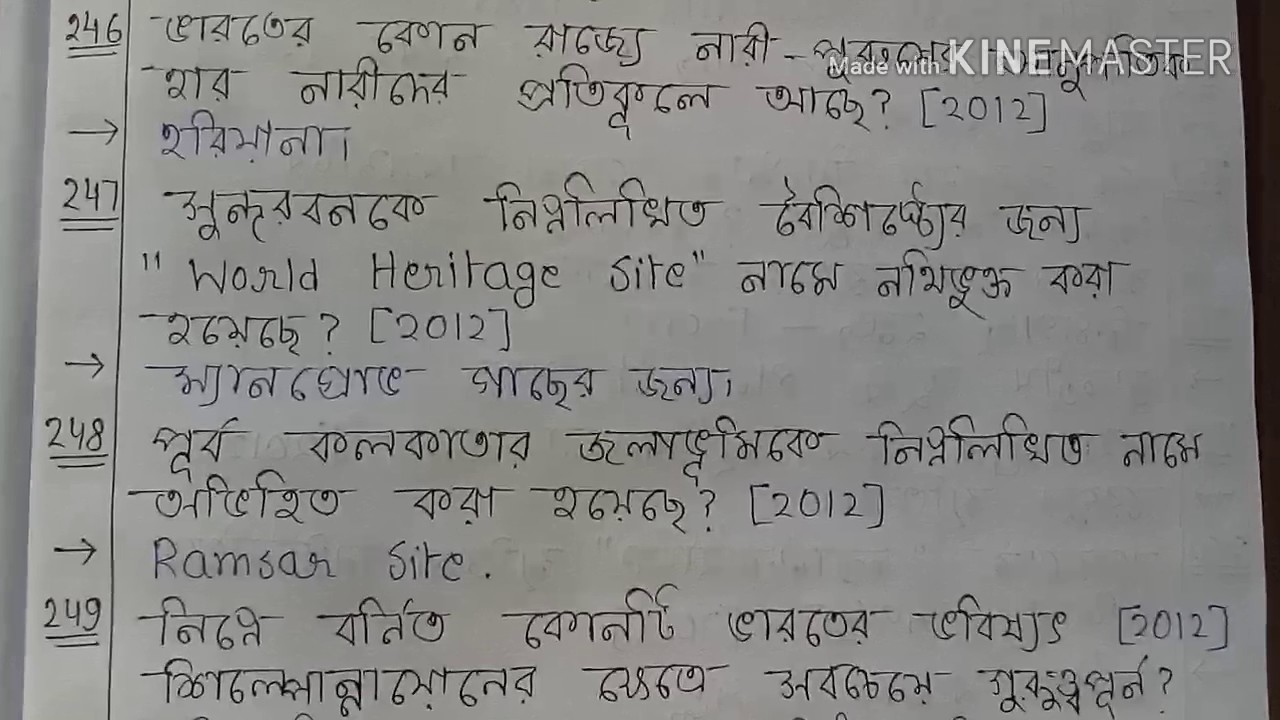 246 ভারতের কোন রাজ্যে নারী - পুরুষের আনুপাতিক
Made with KINEMASTER
হার নারীদের প্রতিকূলে আছে? [2012]
→ হরিয়ানা।
247 সুন্দরবনকে নিম্নলিখিত বৈশিষ্ট্যের জন্য
"World Heritage Site" নামে নথিভুক্ত করা
হয়েছে? [2012]
→ ম্যানগ্রোভ গাছের জন্য।
248 পূর্ব কলকাতার জলাভূমিকে নিম্নলিখিত নামে
অভিহিত করা হয়েছে? [2012]
→ Ramsar Site.
249 নিম্নে বর্নিত কোনটি ভারতের ভবিষ্যৎ [2012]
শিল্পোন্নায়োনের ক্ষেত্রে সবচেয়ে গুরুত্বপূর্ন?